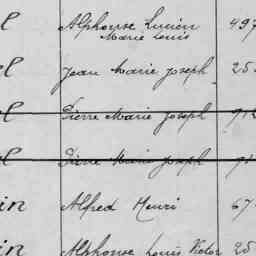 l Alphonse Lucien 497
Marie Louis
el Jean Marie Joseph 25
el Pierre Marie Joseph 712
el Pierre Marie Joseph 71
in Alfred Henri 67
in Alphonse Louis Victor 25